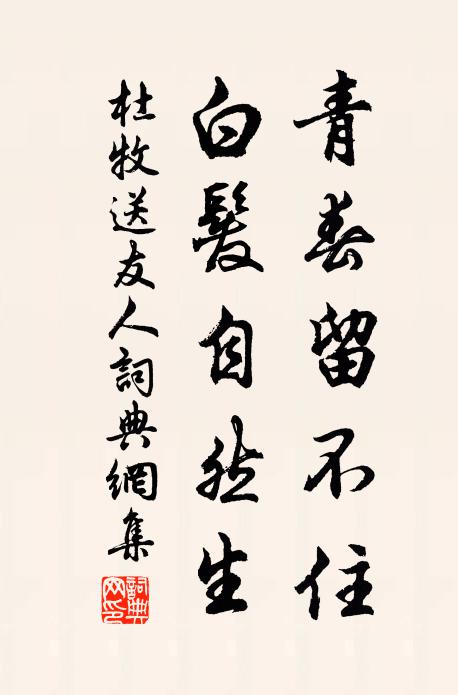 青春留不住
白髮自然生
杜牧送友人詞典網集
詞典網印